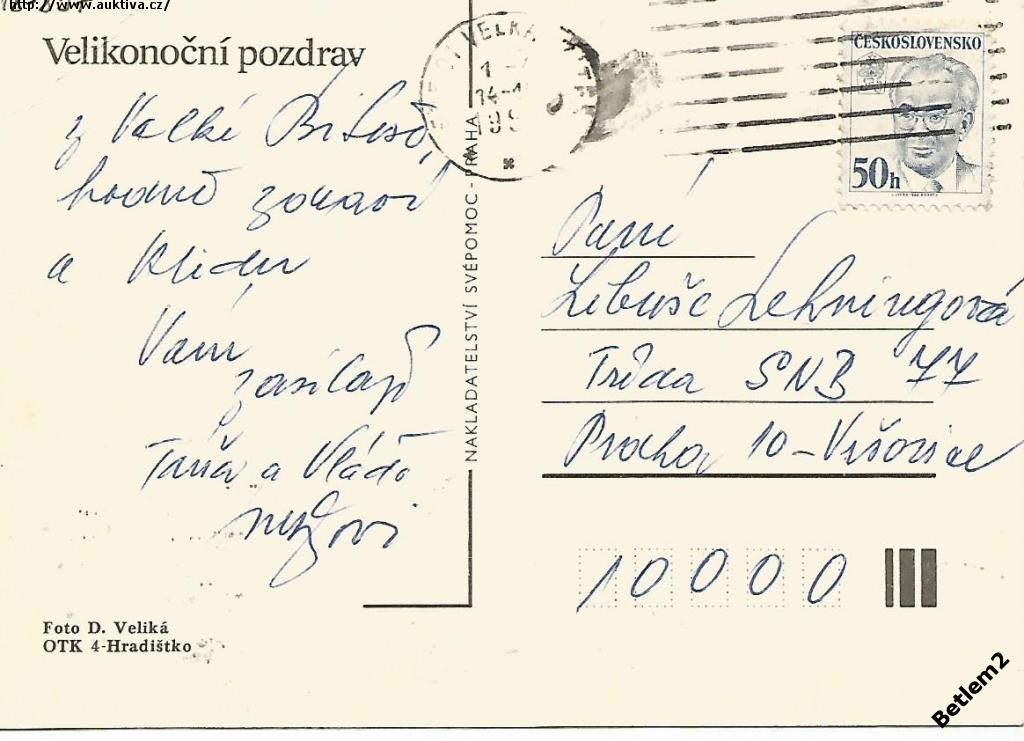 http://www.auktiva.cz/
Velikonoční pozdrav
z Velké Biteše,
hodně zdraví
a klidu
Vám
zasílají
Táňa a Vláďa
NAKLADATELSTVÍ SVÉPOMOC - PRAHA
VELKÁ
ČESKOSLOVENSKO
50h
Paní
Libuše Lehningová
Třída SNB 77
Praha 10 - Vršovice
10000
Foto D. Veliká
OTK 4-Hradištko
Betlem2